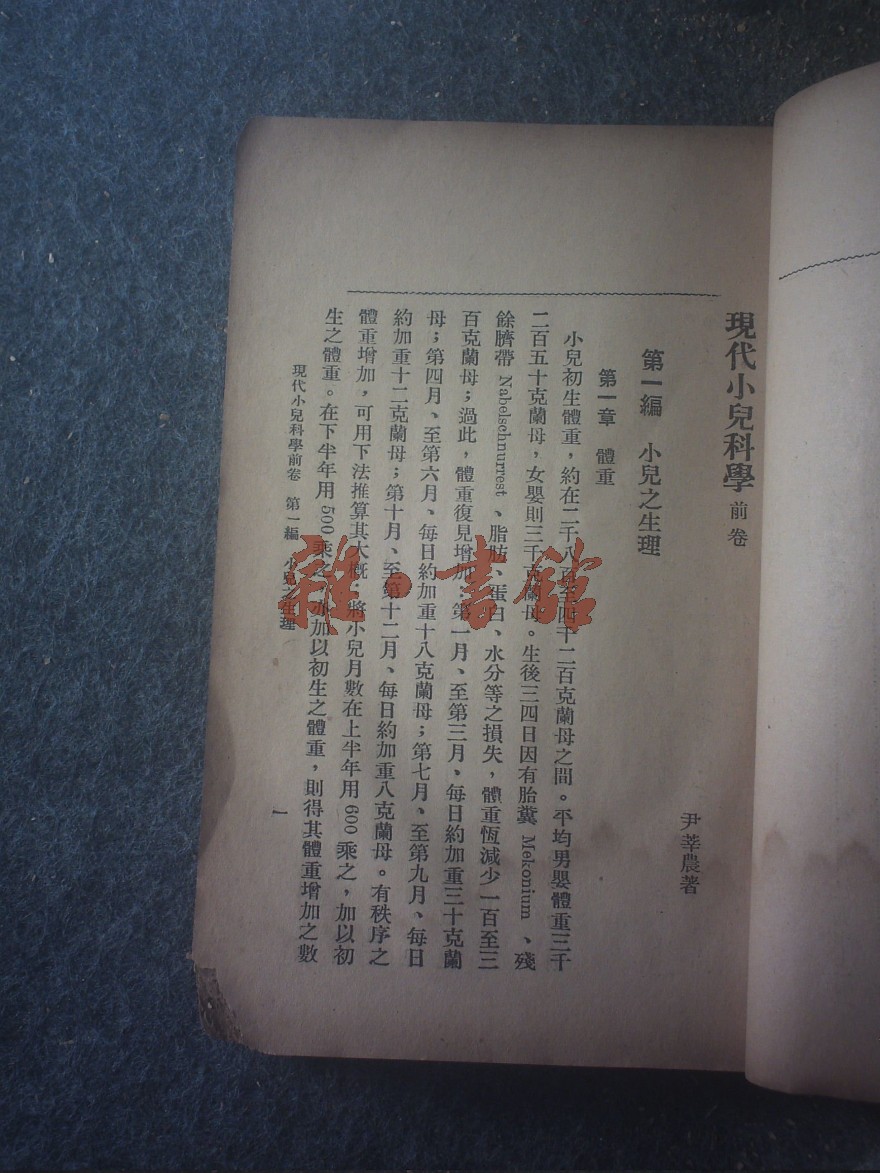 現代小兒科學 前卷
尹莘農著
第一編 小兒之生理
第一章 體重
小兒初生體重，約在二千八百至四千二百克蘭母之間。平均男嬰體重三千
二百五十克蘭母，女嬰則三千克蘭母。生後三四日因有胎糞 Mekonium 、殘
餘臍帶 Nabelschnurrest 、脂肪、蛋白、水分等之損失，體重恆減少一百至三
百克蘭母；過此，體重復見增加：第一月、至第三月、每日約加重三十克蘭
母；第四月、至第六月、每日約加重十八克蘭母；第七月、至第九月、每日
約加重十二克蘭母；第十月、至第十二月、每日約加重八克蘭母。有秩序之
體重增加，可用下法推算其大概：將小兒月數在上半年用 600 乘之，加以初
生之體重。在下半年用 500 乘之，亦加以初生之體重，則得其體重增加之數
現代小兒科學前卷 第一編 小兒之生理
一
雜·書館